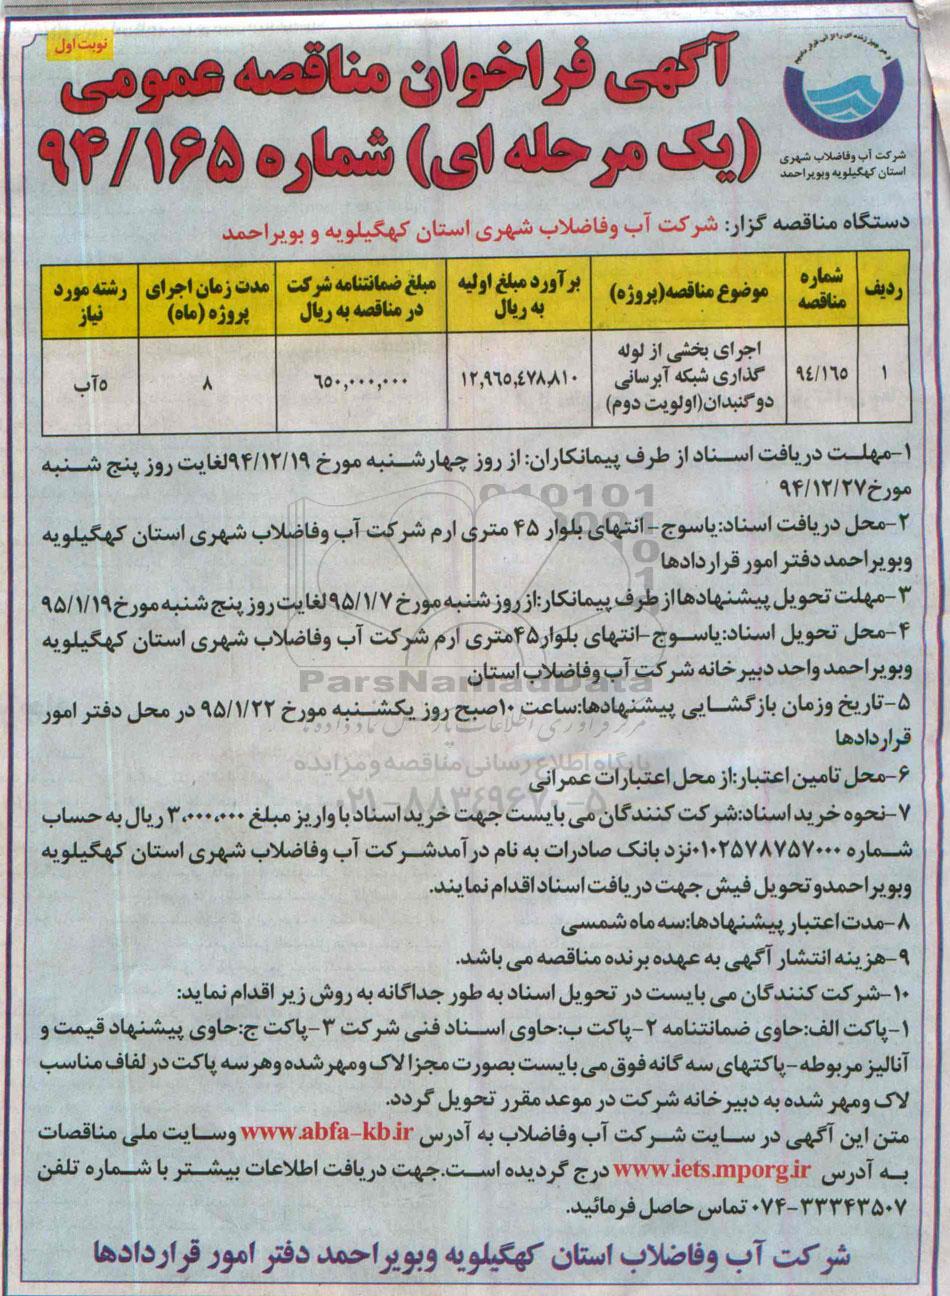 نوبت اول
آگهی فراخوان مناقصه عمومی
(یک مرحله ای) شماره ۹۴/۱۶۵
شرکت آب وفاضلاب شهری
استان کهگیلویه وبویراحمد
دستگاه مناقصه گزار: شرکت آب وفاضلاب شهری استان کهگیلویه و بویراحمد
ردیف
شماره مناقصه
موضوع مناقصه(پروژه)
برآورد مبلغ اولیه به ریال
مبلغ ضمانتنامه شرکت در مناقصه به ریال
مدت زمان اجرای پروژه (ماه)
رشته مورد نیاز
۱
۹٤/۱٦٥
اجرای بخشی از لوله
گذاری شبکه آبرسانی
دوگنبدان(اولویت دوم)
۱۲,۹٦٥,٤۷۸,۸۱۰
٦٥۰,۰۰۰,۰۰۰
۸
٥آب
۱-مهلت دریافت اسناد از طرف پیمانکاران: از روز چهارشنبه مورخ ۹۴/۱۲/۱۹لغایت روز پنج شنبه
مورخ۹۴/۱۲/۲۷
۲-محل دریافت اسناد:یاسوج- انتهای بلوار ۴۵ متری ارم شرکت آب وفاضلاب شهری استان کهگیلویه
وبویراحمد دفتر امور قراردادها
۳-مهلت تحویل پیشنهادها از طرف پیمانکار:از روز شنبه مورخ ۹۵/۱/۷لغایت روز پنج شنبه مورخ۹۵/۱/۱۹
۴-محل تحویل اسناد:یاسوج-انتهای بلوار۴۵متری ارم شرکت آب وفاضلاب شهری استان کهگیلویه
وبویراحمد واحد دبیرخانه شرکت آب وفاضلاب استان
ParsNamadData
۵-تاریخ وزمان بازگشایی پیشنهادها:ساعت ۱۰صبح روز یکشنبه مورخ ۹۵/۱/۲۲ در محل دفتر امور
قراردادها
پایگاه اطلاع رسانی مناقصه و مزایده
۶-محل تامین اعتبار:از محل اعتبارات عمرانی
۰۲۱-۸۸۳۴۹۶۷۰-۵
۷-نحوه خرید اسناد:شرکت کنندگان می بایست جهت خرید اسناد با واریز مبلغ ۳,۰۰۰,۰۰۰ ریال به حساب
شماره ۰۱۰۲۵۷۸۷۵۷۰۰۰نزد بانک صادرات به نام درآمدشرکت آب وفاضلاب شهری استان کهگیلویه
وبویراحمدو تحویل فیش جهت دریافت اسناد اقدام نمایند.
۸-مدت اعتبار پیشنهادها:سه ماه شمسی
۹-هزینه انتشار آگهی به عهده برنده مناقصه می باشد.
۱۰-شرکت کنندگان می بایست در تحویل اسناد به طور جداگانه به روش زیر اقدام نماید:
۱-پاکت الف:حاوی ضمانتنامه ۲-پاکت ب:حاوی اسناد فنی شرکت ۳-پاکت ج:حاوی پیشنهاد قیمت و
آنالیز مربوطه-پاکتهای سه گانه فوق می بایست بصورت مجزا لاک ومهرشده وهر سه پاکت در لفاف مناسب
لاک ومهر شده به دبیرخانه شرکت در موعد مقرر تحویل گردد.
متن این آگهی در سایت شرکت آب وفاضلاب به آدرس www.abfa-kb.ir وسایت ملی مناقصات
به آدرس www.iets.mporg.ir درج گردیده است.جهت دریافت اطلاعات بیشتر با شماره تلفن
۰۷۴-۳۳۳۴۳۵۰۷ تماس حاصل فرمائید.
شرکت آب وفاضلاب استان کهگیلویه وبویراحمد دفتر امور قراردادها